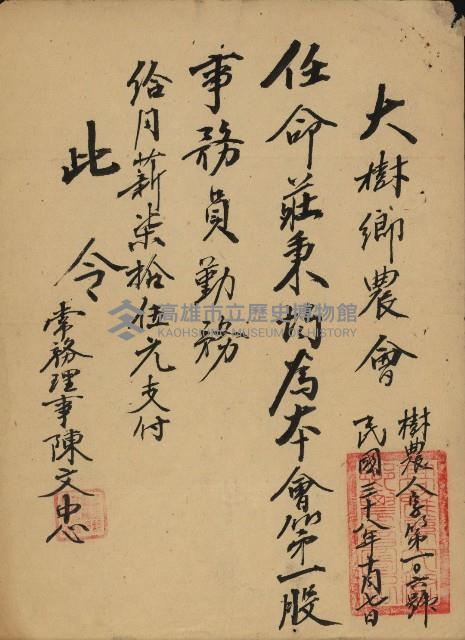 大樹鄉農會
樹農人字第一〇六號
民國三十八年十月七日
任命莊秉均為本會第一股
事務員勤務
給月薪柒拾伍元支付
此令
常務理事陳文中心
高雄市立歷史博物館
KAOHSIUNG MUSEUM OF HISTORY